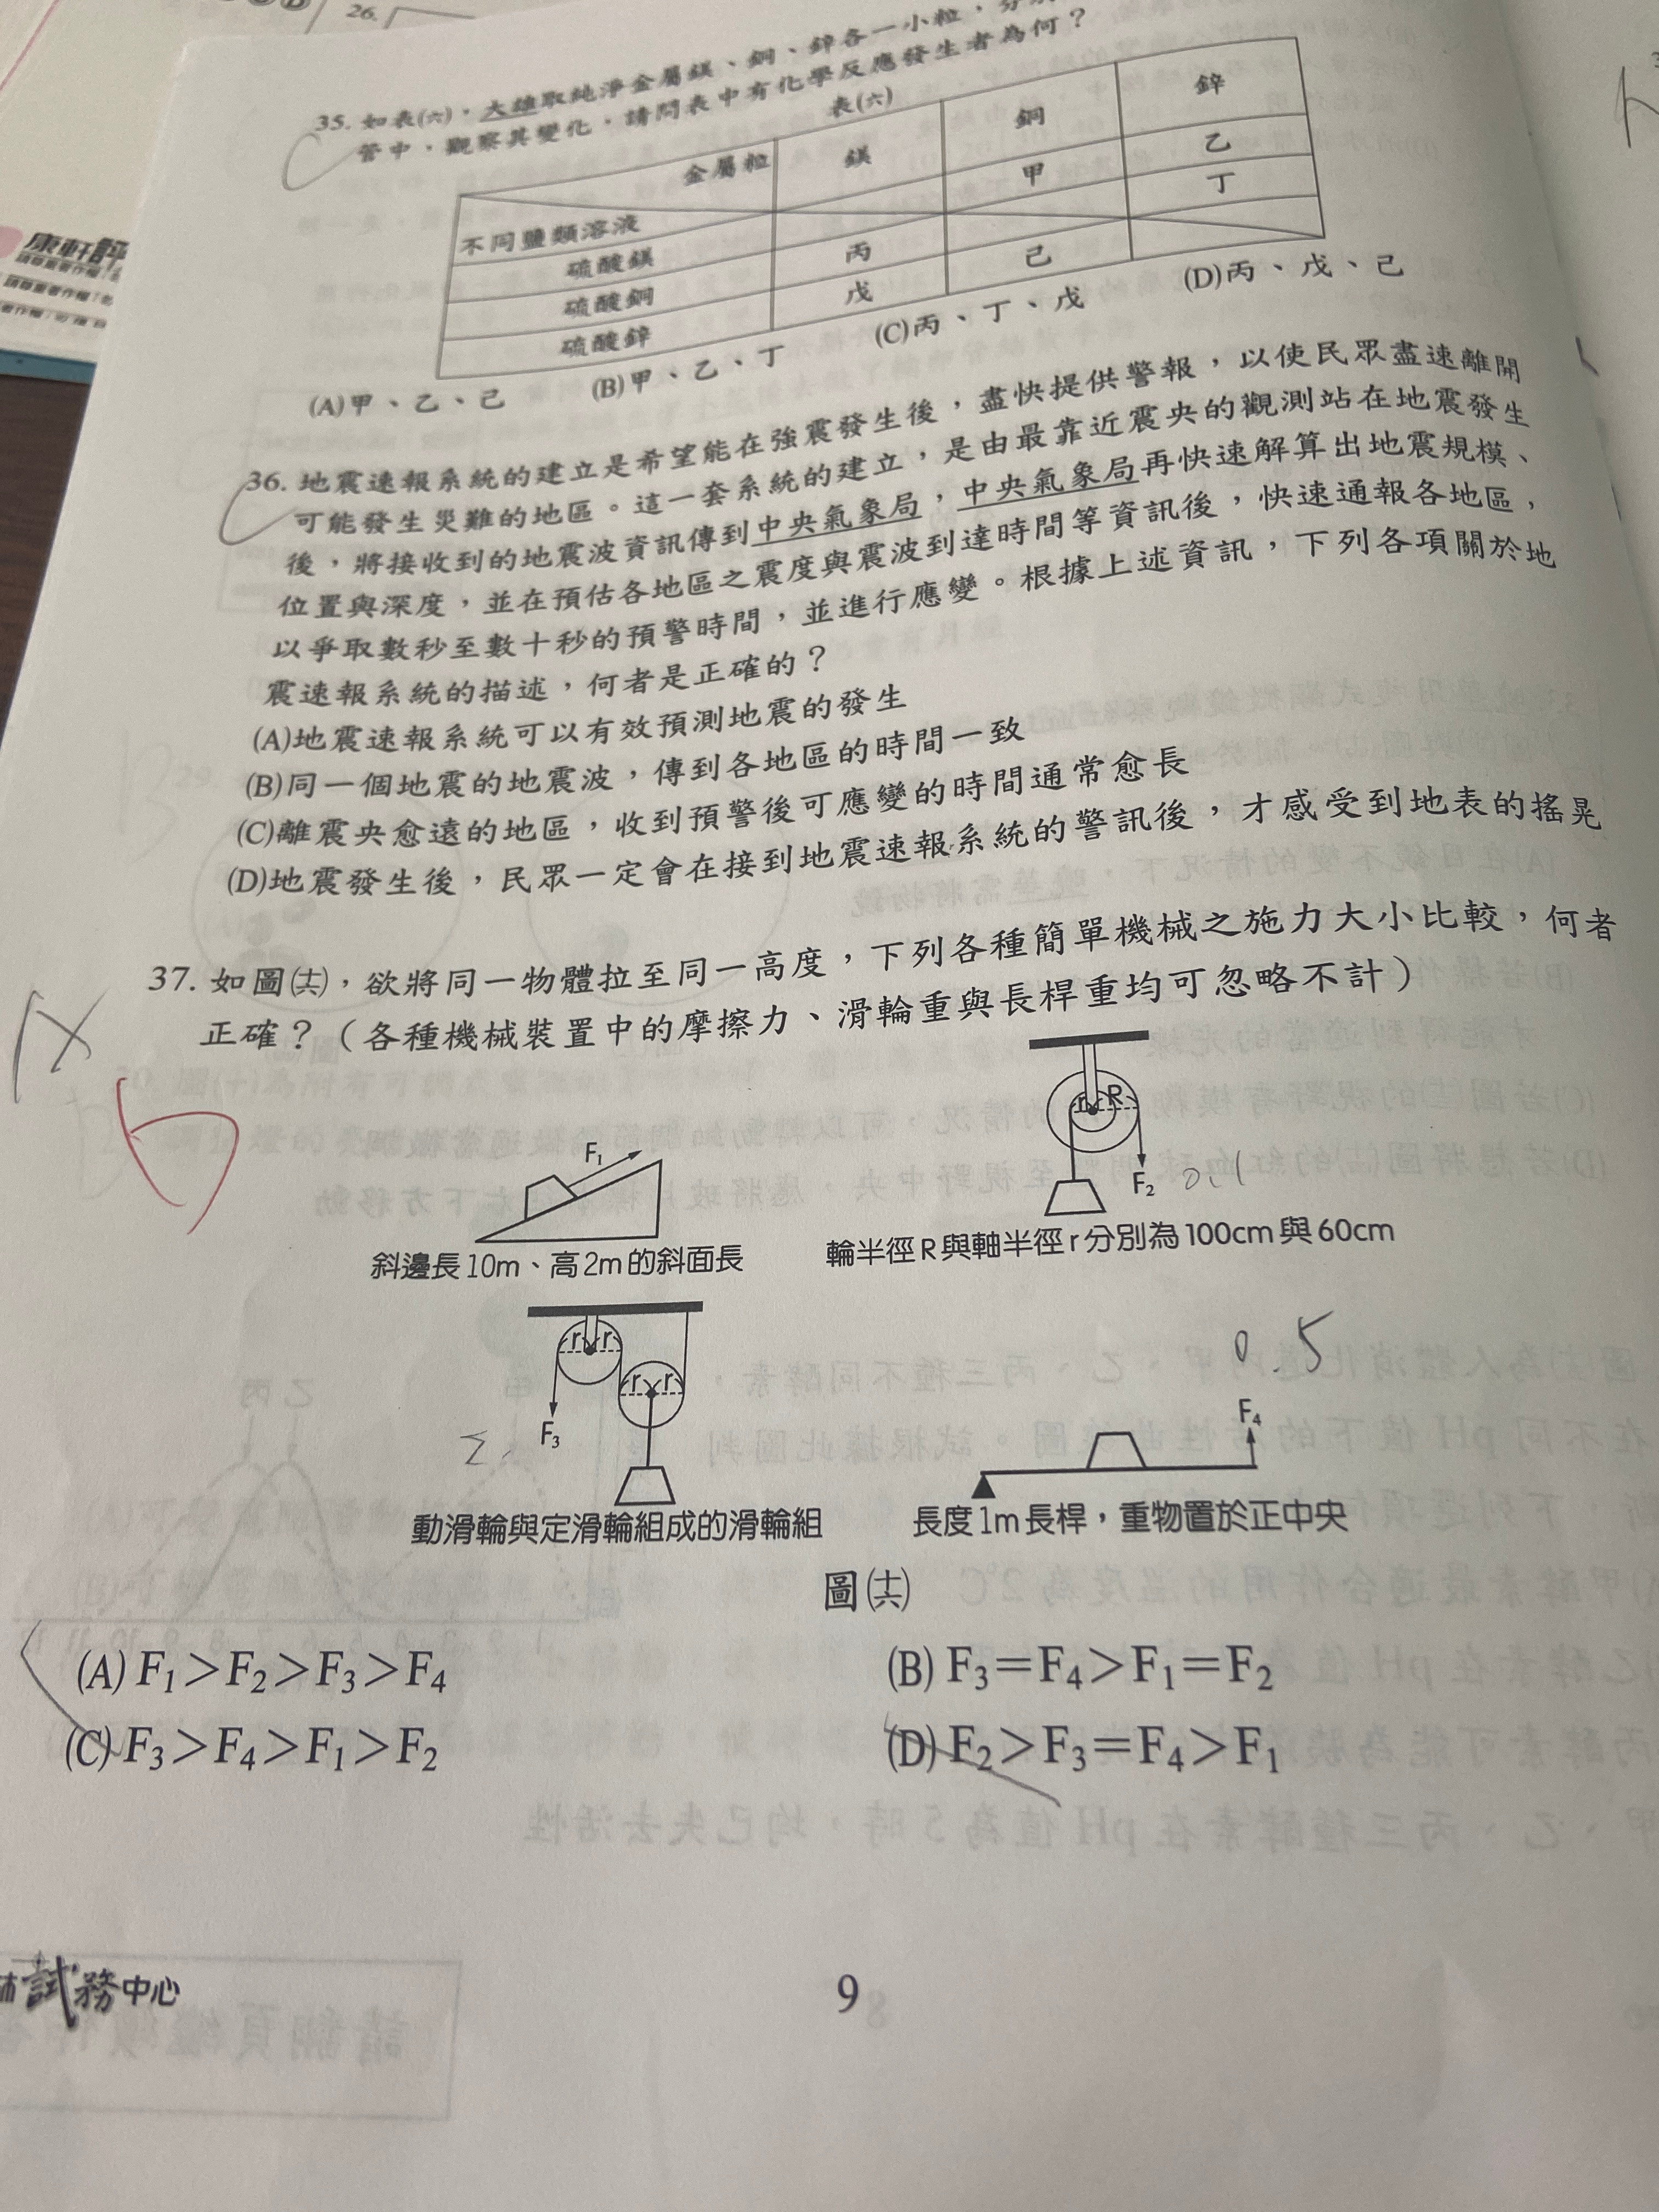 26.
35. 如表(六)，大雄取純淨金屬鎂、銅、鋅各一小粒，分別
管中，觀察其變化，請問表中有化學反應發生者為何？
表(六)
金屬粒 鎂 銅 鋅
不同鹽類溶液
硫酸鎂 甲 乙
硫酸銅 丙 丁
硫酸鋅 戊 己
(A)甲、乙、己 (B)甲、乙、丁 (C)丙、丁、戊 (D)丙、戊、己
36. 地震速報系統的建立是希望能在強震發生後，盡快提供警報，以使民眾盡速離開
可能發生災難的地區。這一套系統的建立，是由最靠近震央的觀測站在地震發生
後，將接收到的地震波資訊傳到中央氣象局，中央氣象局再快速解算出地震規模、
位置與深度，並在預估各地區之震度與震波到達時間等資訊後，快速通報各地區，
以爭取數秒至數十秒的預警時間，並進行應變。根據上述資訊，下列各項關於地
震速報系統的描述，何者是正確的？
(A)地震速報系統可以有效預測地震的發生
(B)同一個地震的地震波，傳到各地區的時間一致
(C)離震央愈遠的地區，收到預警後可應變的時間通常愈長
(D)地震發生後，民眾一定會在接到地震速報系統的警訊後，才感受到地表的搖晃
37. 如圖(十六)，欲將同一物體拉至同一高度，下列各種簡單機械之施力大小比較，何者
正確？（各種機械裝置中的摩擦力、滑輪重與長桿重均可忽略不計）
F₁
斜邊長10m、高2m的斜面長
r R
F₂ 0.1
輪半徑R與軸半徑r分別為100cm與60cm
r r
r r
F₃
動滑輪與定滑輪組成的滑輪組
0.5
F₄
長度1m長桿，重物置於正中央
圖(十六)
(A) F₁＞F₂＞F₃＞F₄
(B) F₃＝F₄＞F₁＝F₂
(C) F₃＞F₄＞F₁＞F₂
(D) F₂＞F₃＝F₄＞F₁
試務中心
9
康軒評